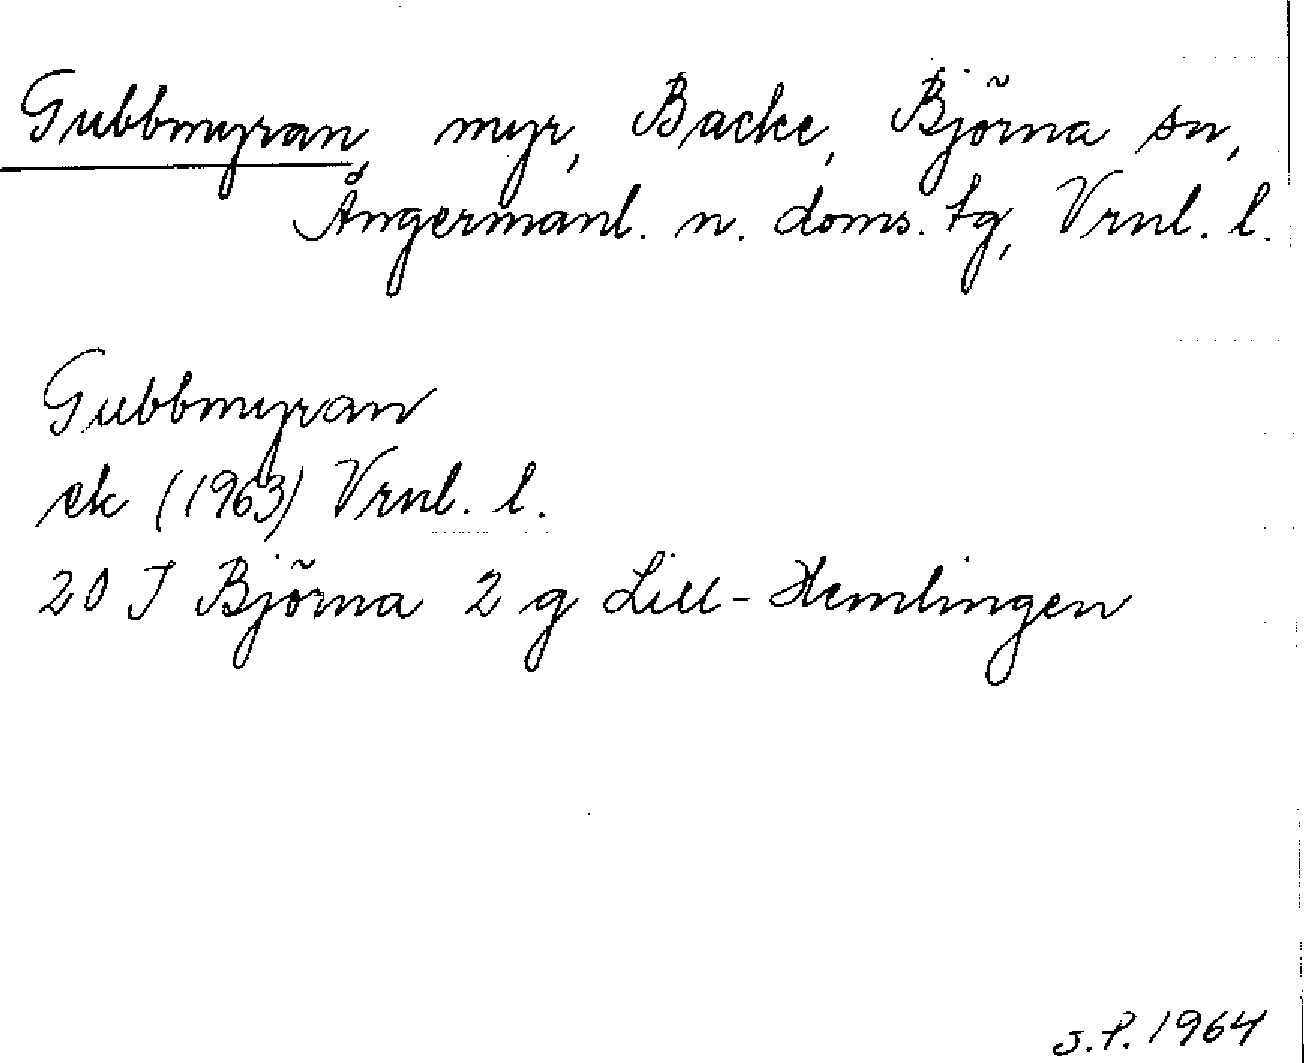 Gubbmyran, myr, Backe, Björna sn,
Ångermanl. n. doms. tg, Vrnl. l.
Gubbmyran
ek (1963) Vrnl. l.
20 I Björna 2 g Lill-Hemlingen
J.P. 1964